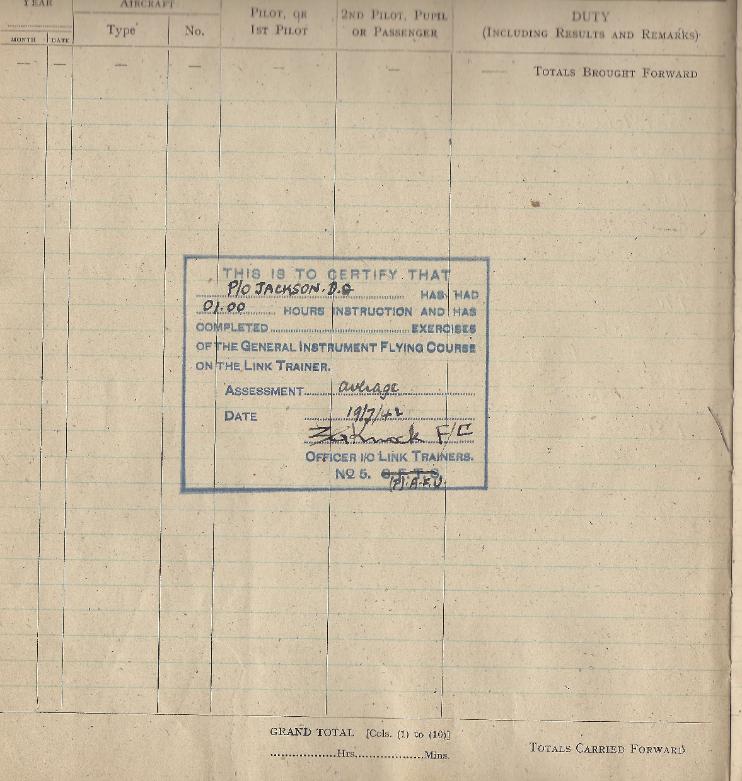 YEAR
AIRCRAFT
PILOT, OR
1ST PILOT
2ND PILOT, PUPIL
OR PASSENGER
DUTY
(INCLUDING RESULTS AND REMARKS)
MONTH DATE Type No.
— — — — — — — TOTALS BROUGHT FORWARD
THIS IS TO CERTIFY THAT
P/O JACKSON. D.G HAS HAD
01.00 HOURS INSTRUCTION AND HAS
COMPLETED EXERCISES
OF THE GENERAL INSTRUMENT FLYING COURSE
ON THE LINK TRAINER.
ASSESSMENT average
DATE 19/7/42
F/L
OFFICER I/C LINK TRAINERS.
NO 5. S.F.T.S.
(P).A.F.U.
GRAND TOTAL [Cols. (1) to (10)]
Hrs. Mins.
TOTALS CARRIED FORWARD